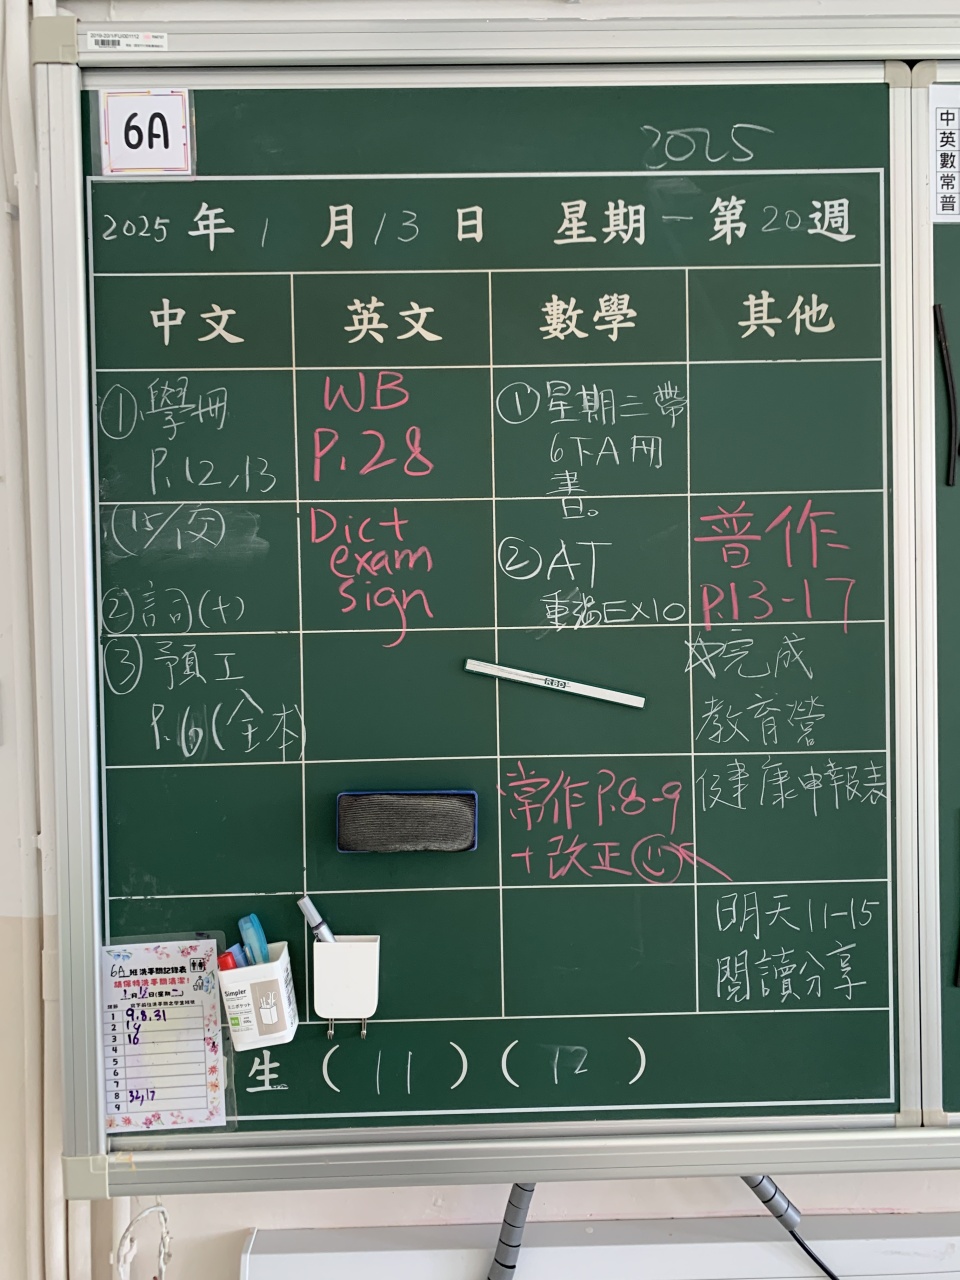 6A
2025
2025年1月13日 星期一 第20週
中文 英文 數學 其他
①學冊
P.12,13
②詞(十)
③預工
P.6(全本)
WB
P.28
Dict
exam
sign
①星期三帶
6下A冊
書。
②AT
EX10
常作P.8-9
+改正
普作
P.13-17
☆完成
教育營
健康申報表
明天11-15
閱讀分享
生(11)(12)
6A班洗手間記錄表
請保持洗手間清潔!
1 9,8,31
2 14
3 16
4
5
6
7
8 32,17
9
Simpler
RBD
中
英
數
常
普